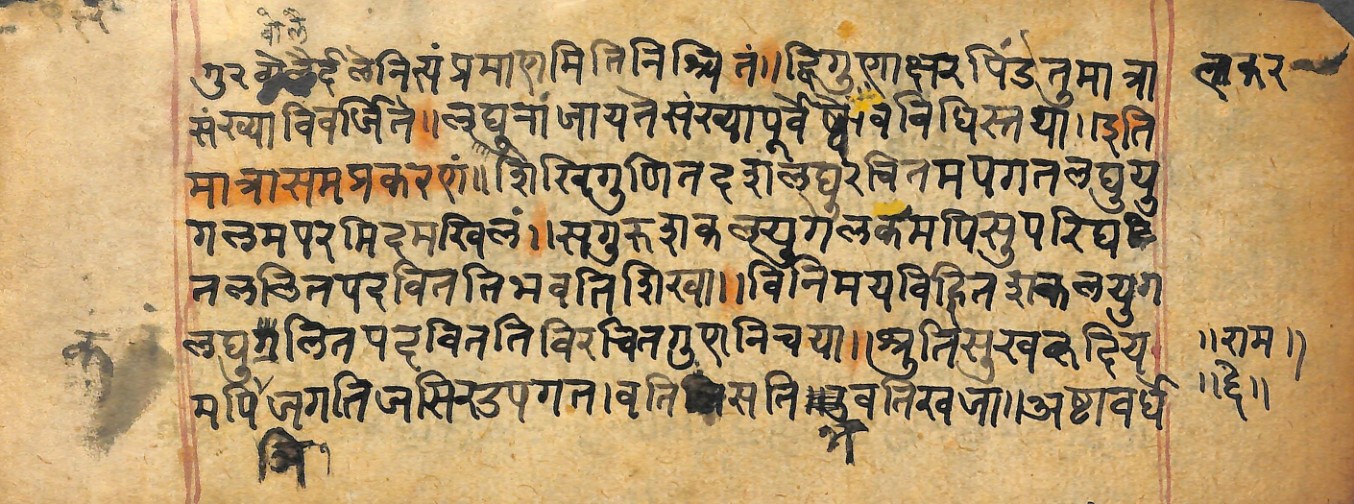 वोलै
गुरवोलैर्दलेनित्यंप्रमाणमितिनिश्चितं॥द्विगुणाक्षरपिंडेतुमात्रा
संख्याविवर्जिते॥लघूनांजायतेसंख्यापूर्वेष्वेवविधिस्तथा॥इति
मात्रासमप्रकरणं॥शिखिगुणितदशलघुरचितमपगतलघुयु
गलमपरमिदमखिलं॥सगुरुशकलयुगलकमपिसुपरिघटि
तललितपदविततिभवतिशिखा॥विनिमयविहितशकलयुग
लघुललितपदविततिविरचितगुणनिचया॥श्रुतिसुखकृदिय
मपिजगतिञसिरउपगत।वतिसतिवतिखजा॥अष्टावर्धे
लाकर
॥राम॥
॥द्वै॥
ञि।
भ